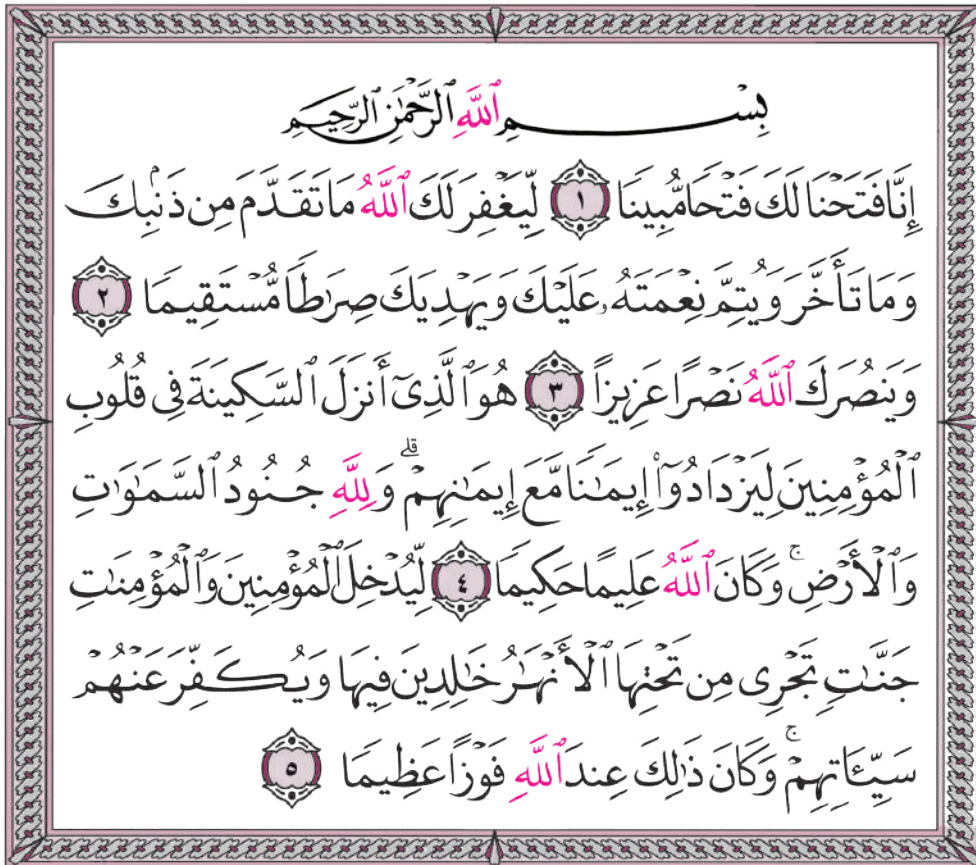 بِسْمِ ٱللَّهِ ٱلرَّحْمَٰنِ ٱلرَّحِيمِ
إِنَّا فَتَحْنَا لَكَ فَتْحًا مُّبِينًا ١ لِّيَغْفِرَ لَكَ ٱللَّهُ مَا تَقَدَّمَ مِن ذَنۢبِكَ
وَمَا تَأَخَّرَ وَيُتِمَّ نِعْمَتَهُۥ عَلَيْكَ وَيَهْدِيَكَ صِرَٰطًا مُّسْتَقِيمًا ٢
وَيَنصُرَكَ ٱللَّهُ نَصْرًا عَزِيزًا ٣ هُوَ ٱلَّذِىٓ أَنزَلَ ٱلسَّكِينَةَ فِى قُلُوبِ
ٱلْمُؤْمِنِينَ لِيَزْدَادُوٓا۟ إِيمَٰنًا مَّعَ إِيمَٰنِهِمْ ۗ وَلِلَّهِ جُنُودُ ٱلسَّمَٰوَٰتِ
وَٱلْأَرْضِ ۚ وَكَانَ ٱللَّهُ عَلِيمًا حَكِيمًا ٤ لِّيُدْخِلَ ٱلْمُؤْمِنِينَ وَٱلْمُؤْمِنَٰتِ
جَنَّٰتٍ تَجْرِى مِن تَحْتِهَا ٱلْأَنْهَٰرُ خَٰلِدِينَ فِيهَا وَيُكَفِّرَ عَنْهُمْ
سَيِّـَٔاتِهِمْ ۚ وَكَانَ ذَٰلِكَ عِندَ ٱللَّهِ فَوْزًا عَظِيمًا ٥